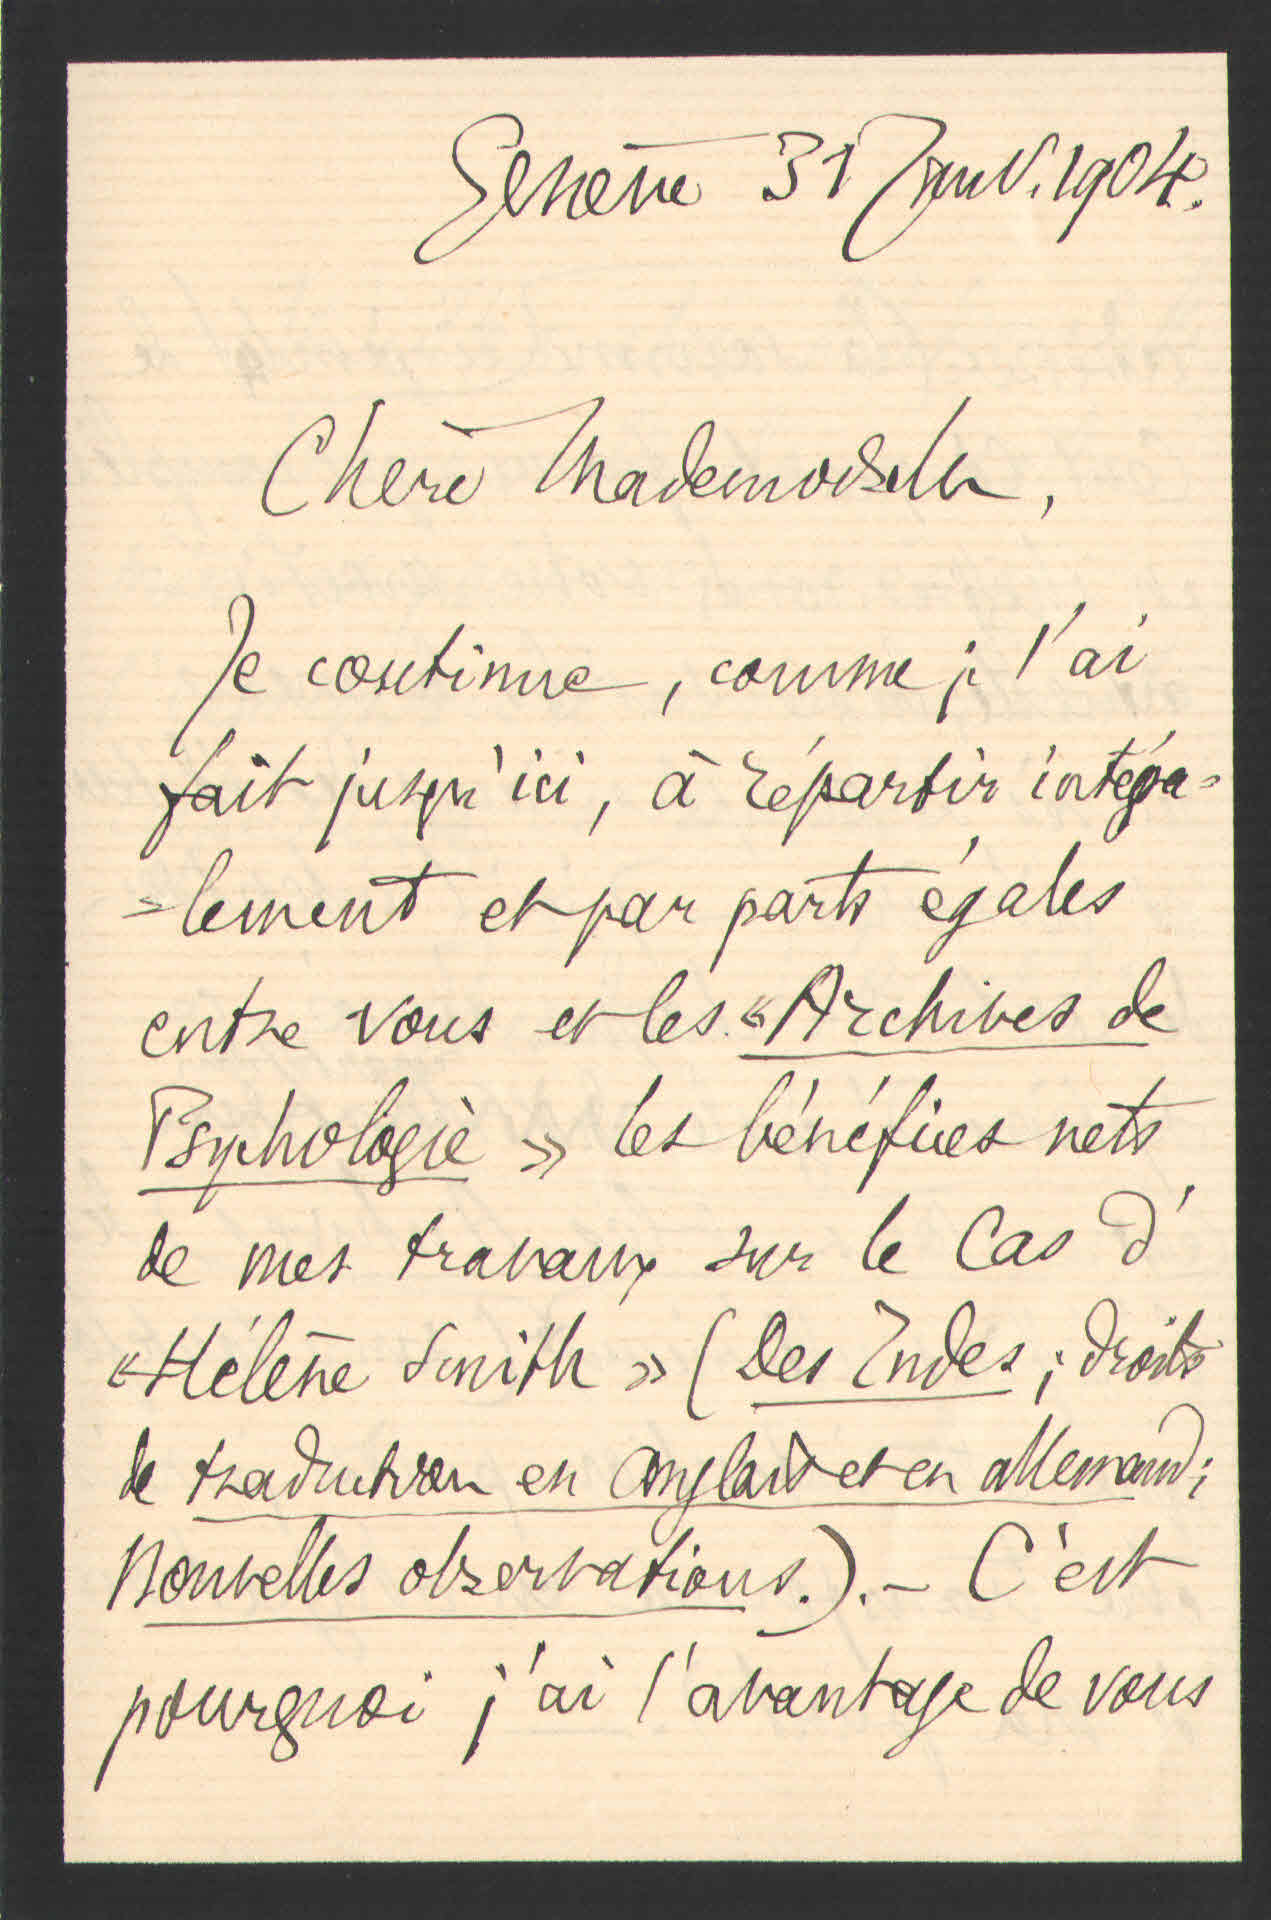 Genève 31 Janv. 1904.
Chère Mademoiselle,
Je continue, comme je l'ai
fait jusqu'ici, à répartir intégra-
-lement et par parts égales
entre vous et les «Archives de
Psychologie» les bénéfices nets
de mes travaux sur le Cas d'
«Hélène Smith» (Des Indes; droits
de traduction en anglais et en allemand;
Nouvelles observations.).- C'est
pourquoi j'ai l'avantage de vous